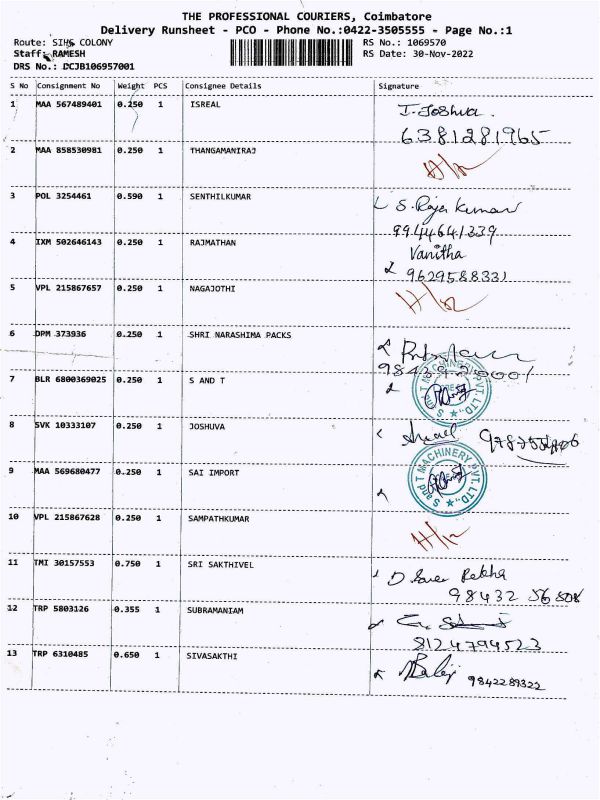 THE PROFESSIONAL COURIERS, Coimbatore
Delivery Runsheet - PCO - Phone No.:0422-3505555 - Page No.:1
Route: SIHS COLONY RS No.: 1069570
Staff: RAMESH RS Date: 30-Nov-2022
DRS No.: DCJB106957001
S No Consignment No Weight PCS Consignee Details Signature
1 MAA 567489401 0.250 1 ISREAL I. Joshva.
6381281965
2 MAA 858530981 0.250 1 THANGAMANIRAJ
3 POL 3254461 0.590 1 SENTHILKUMAR S. Raja kumar
9944641339
4 IXM 502646143 0.250 1 RAJMATHAN Vanitha
9629588331
5 VPL 215867657 0.250 1 NAGAJOTHI
6 DPM 373936 0.250 1 SHRI NARASHIMA PACKS
7 BLR 6800369025 0.250 1 S AND T S and T MACHINERY PVT. LTD.
8 SVK 10333107 0.250 1 JOSHUVA
9 MAA 569680477 0.250 1 SAI IMPORT S and T MACHINERY PVT. LTD.
10 VPL 215867628 0.250 1 SAMPATHKUMAR
11 TMI 30157553 0.750 1 SRI SAKTHIVEL
98432 56808
12 TRP 5803126 0.355 1 SUBRAMANIAM
8124794523
13 TRP 6310485 0.650 1 SIVASAKTHI Balaji 9842289322